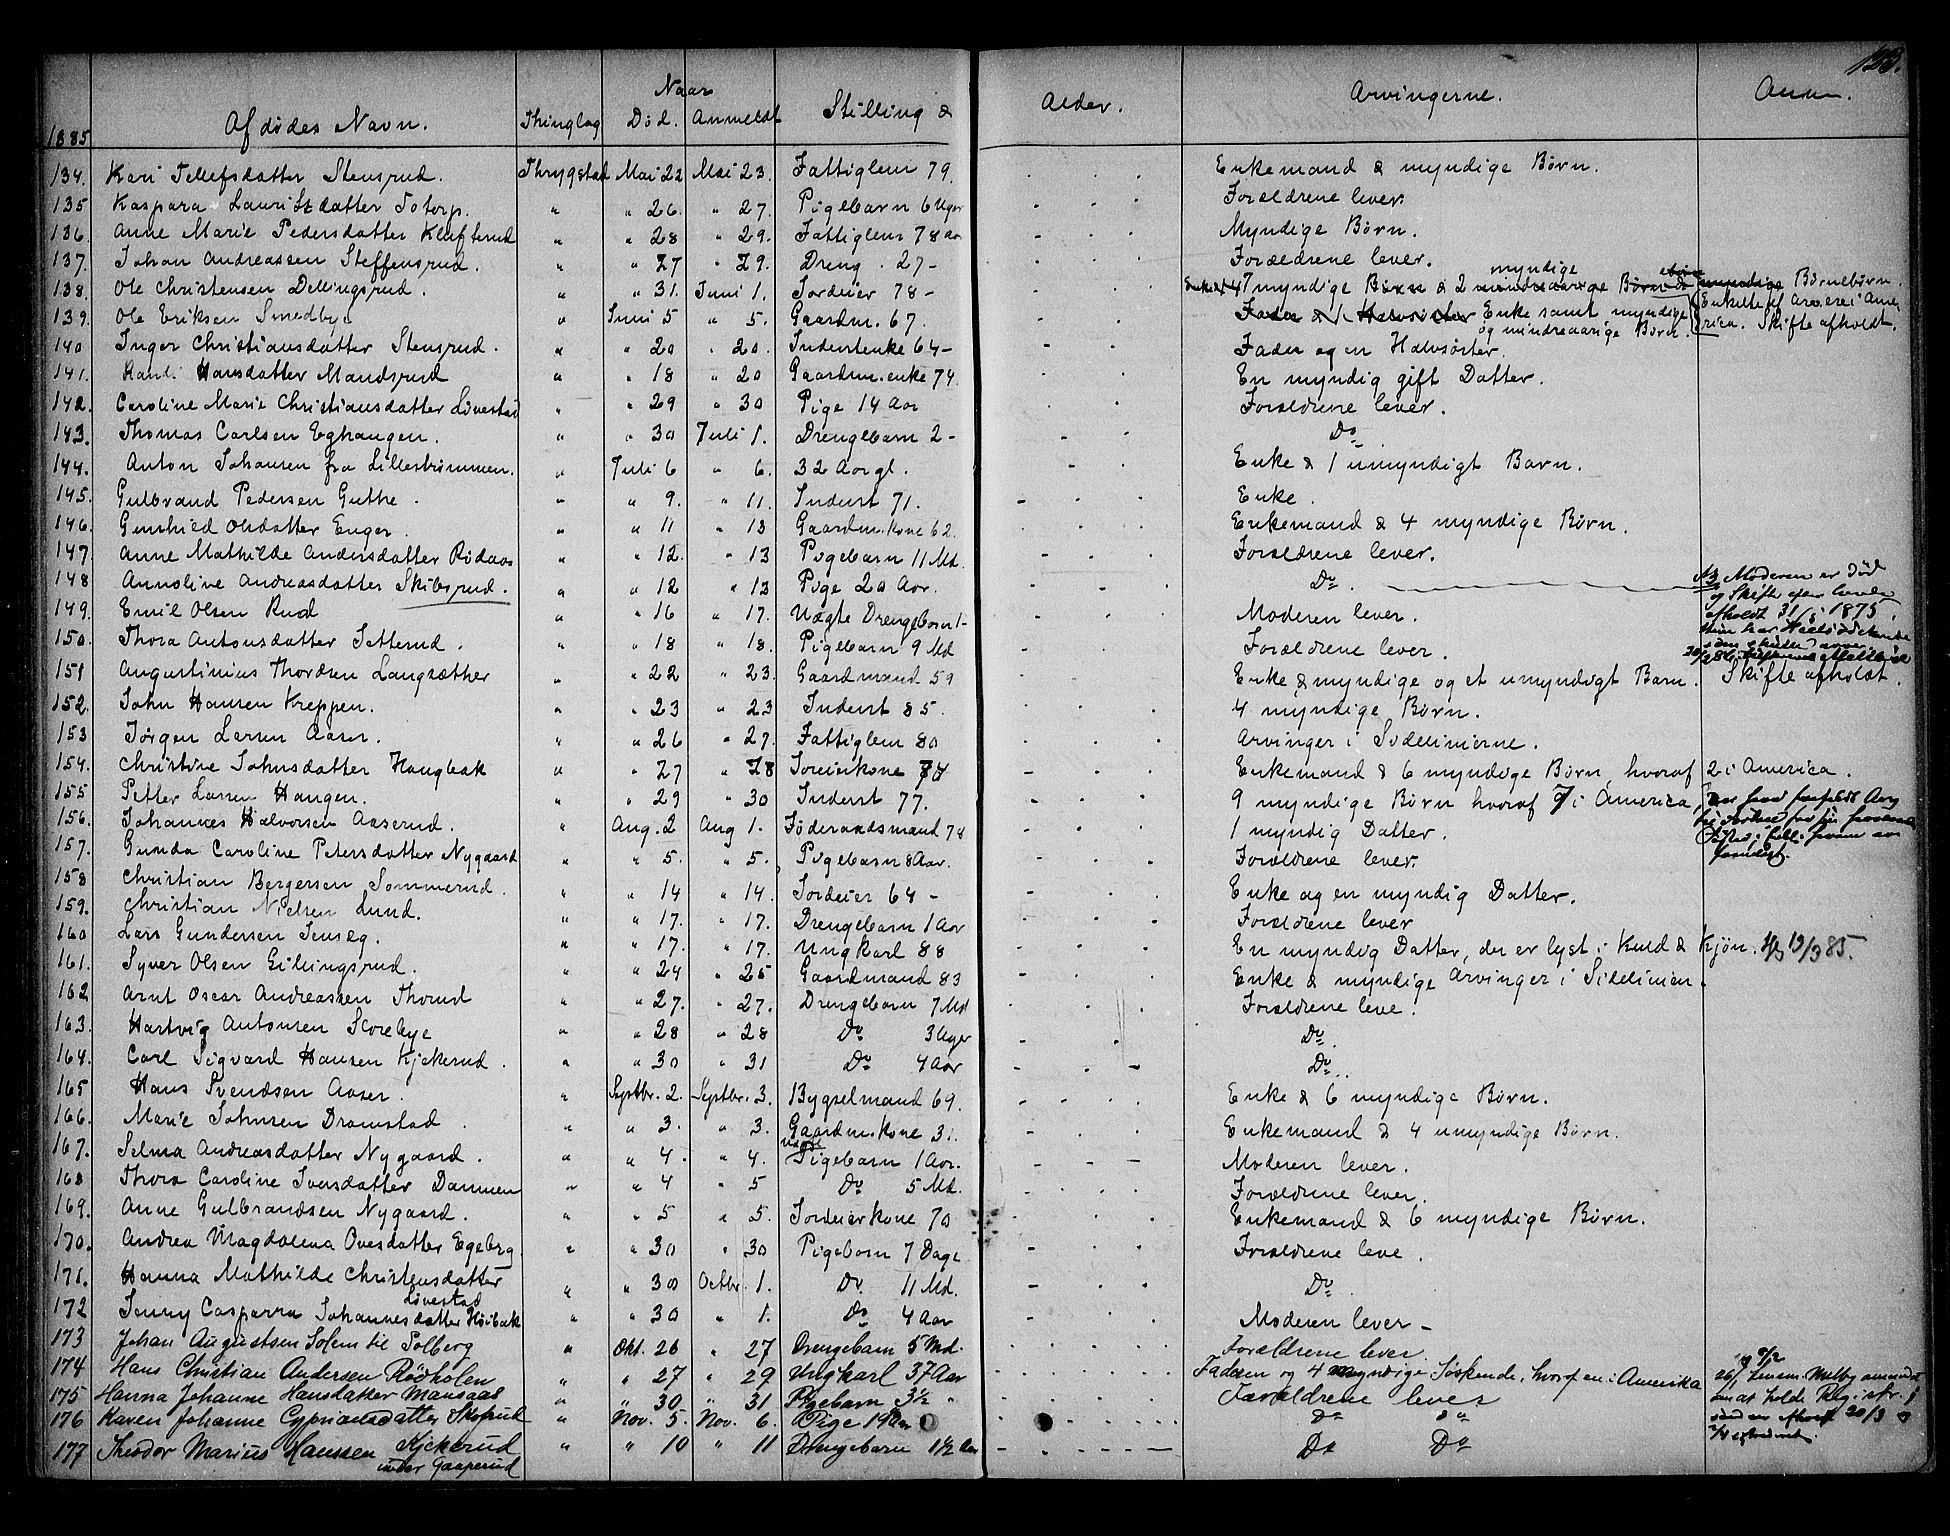 123.
1885 Afdødes Navn. Thinglag Naar Død. Anmeldt Stilling & Alder. Arvingerne. Anm.
134. Kari Tellefsdatter Stensrud. Thrygstad Mai 22 Mai 23. Fattiglem 79. Enkemand & myndige Børn.
135 Kaspara Lauritzdatter Totorp. " " 26. " 27. Pigebarn 6 Uger Forældrene lever.
136. Anne Marie Pedersdatter Klufterud " " 28 " 29. Fattiglem 78 Aar Myndige Børn.
137. Johan Andreassen Steffensrud. " " 27 " 29. Dreng . 27 - Forældrene lever.
138. Ole Christensen Dellingsrud. " " 31. Juni 1. Jordeier 78 - 7 myndige Børn & 2 myndige Børnebørn.
139. Ole Eriksen Smedbye " Juni 5 " 5. Gaardm. 67. Fader & 1 Halvsøster Enke samt myndige og mindreaarige Børn. Enkelte af Arv. ere i America. Skifte afholdt.
140 Inger Christiansdatter Stensrud. " " 20 " 20. Inderstenke 64 - Fader og en Halvsøster.
141. Hansdatter Mandsrud " " 18 " 20 Gaardm. enke 74. En myndig gift Datter.
142. Caroline Marie Christiansdatter Løvestad " " 29 " 30 Pige 14 Aar Forældrene lever.
143. Thomas Carlsen Eghaugen. " " 30 Juli 1. Drengebarn 2 - Do
144. Anton Johansen fra Lillestrømmen. " Juli 6 " 6. 32 Aar gl. Enke & 1 umyndigt Barn.
145. Gulbrand Pedersen Guthe. " " 9. " 11. Inderst 71. Enke.
146. Gunhild Olsdatter Enger. " " 11 " 13 Gaardm. kone 62. Enkemand & 4 myndige Børn.
147. Anne Mathilde Andersdatter Rødaas " " 12. " 13 Pigebarn 11 Md. Forældrene lever.
148 Annoline Andreasdatter Skibsrud. " " 12 " 13 Pige 20 Aar. Do. NB Moderen er død og Skifte efter hende afholdt 31/ 1875.
149. Emil Olsen Rud " " 16 " 17. Uægte Drengebarn 1 - Moderen lever.
150. Thora Antonsdatter Setterud. " " 18 " 18. Pigebarn 9 Md Forældrene lever.
151 Augustinius Thordsen Langsæther " " 22 " 23. Gaardmand 59 Enke, myndige og et umyndigt Barn. Skifte afholdt.
152. John Hansen Kreppen. " " 23 " 23 Inderst 85. 4 myndige Børn.
153 Jørgen Larsen Aaser. " " 26 " 27. Fattiglem 80 Arvinger i Sidelinierne.
154. Christine Johnsdatter Haugbak " " 27 " 28 Jordeierkone 74 Enkemand & 6 myndige Børn, hvoraf 2 i America.
155 Petter Larsen Haugen. " " 29 " 30 Inderst 77. 9 myndige Børn hvoraf 7 i America,
156. Johannes Halvorsen Aaserud. " Aug. 2 Aug 1. Føderaadsmand 78 1 myndig Datter.
157. Gunda Caroline Petersdatter Nygaard " " 5. " 5. Pigebarn 8 Aar. Forældrene lever.
158 Christian Bergersen Sommerud. " " 14 " 14. Jordeier 64 - Enke og en myndig Datter.
159. Christian Nielsen Lund. " " 17. " 17. Drengebarn 1 Aar Forældrene lever
160 Lars Gundersen Jenseg. " " 17. " 17. Ungkarl 88 En myndig Datter, der er lyst i Kuld & Kjøn. 13/3 85.
161. Syver Olsen Eilingsrud. " " 24 " 25 Gaardmand 83 Enke & myndige Arvinger i Sidelinien.
162 Arnt Oscar Andreassen Thorud " " 27. " 27. Drengebarn 7 Md Forældrene leve.
163. Hartvig Antonsen Skorebye " " 28 " 28 Do 3 Uger Do.
164. Carl Sigvard Hansen Kjekerud. " " 30 " 31 Do 4 Aar Do.
165 Hans Svendsen Aaser. " Septbr. 2. Septbr. 3. Bygselmand 69. Enke & 6 myndige Børn.
166. Marie Johnsen Dramstad. " " 3. " 3. Gaardm. kone 31. Enkemand & 4 umyndige Børn.
167. Selma Andreasdatter Nygaard. " " 4. " 4. uægte Pigebarn 1 Aar. Moderen lever.
168 Thora Caroline Iversdatter Dammen " " 4 " 5 Do 5 Md. Forældrene lever.
169. Anne Gulbrandsen Nygaard. " " 5 " 5. Jordeierkone 70 Enkemand & 6 myndige Børn.
170. Andrea Magdalena Ovesdatter Egeberg " " 30 " 30 Pigebarn 7 Dage Forældrene leve.
171. Hanna Mathilde Christensdatter Løvestad " " 30 Octbr. 1. Do. 11 Md. Do
172 Jenny Casparra Johannesdatter Høibak " " 30 " 1. Do 4 Aar Moderen lever -
173 Johan Augustsen Solem til Solberg " Okt. 26 " 27 Drengebarn 5 Md. Forældrene lever
174 Hans Christian Andersen Rødholen " " 27 " 29 Ungkarl 37 Aar Faderen og 4 myndige Søskende, hvoraf en i Amerika
175 Hanna Johanne Hansdatter Mansaas " " 30 " 31 Pigebarn 3½ " Forældrene lever
176 Karen Johanne Cypriansdatter Skofsrud " Nov. 5. Nov. 6. Pige 19 Aar Do Do
177 Theodor Marius Hanssen Kjekerud under Gaaperud " " 10 " 11 Drengebarn 1½ Aar Do Do